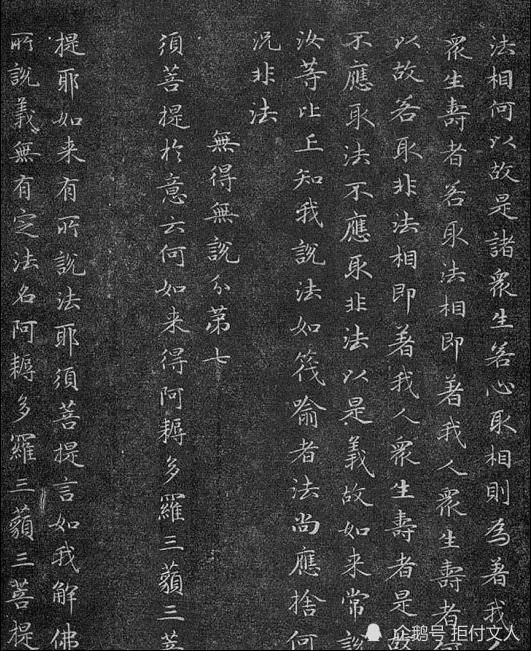 法相何以故是諸衆生若心取相則為著我
衆生壽者若取法相即著我人衆生壽者
以故若取非法相即著我人衆生壽者是故
不應取法不應取非法以是義故如来常説
汝等比丘知我説法如筏喻者法尚應捨何
況非法
無得無説分第七
須菩提於意云何如来得阿耨多羅三藐三菩
提耶如来有所説法耶須菩提言如我解佛
所説義無有定法名阿耨多羅三藐三菩提
企鹅号 拒付文人